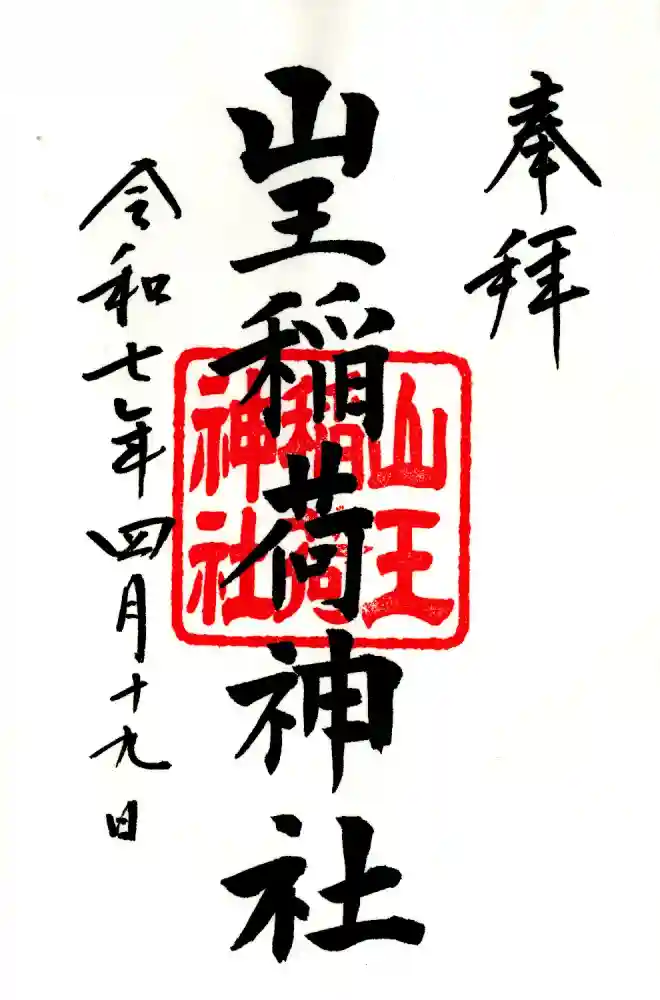 奉拝
山王稲荷神社
令和七年四月十九日
山王
稲荷
神社